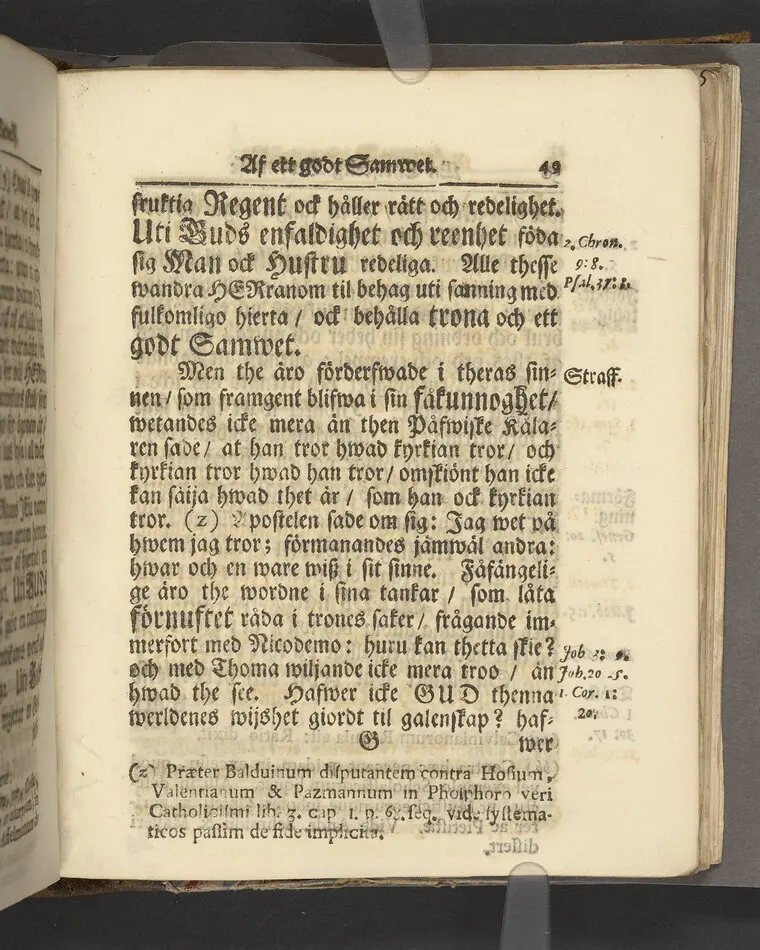 Af ett godt Samwet. 49
fruktia Regent ock håller rätt och redelighet.
Uti Guds enfaldighet och reenhet föda
sig Man ock Hustru redeliga. Alle thesse
wandra HERranom til behag uti sanning med
fulkomligo hierta / ock behålla trona och ett
godt Samwet.
2. Chron.
9: 8.
Psal. 37: 1.
Men the äro förderfwade i theras sin-
nen / som framgent blifwa i sin fåkunnoghet /
wetandes icke mera än then Påfwiske Kåla-
ren sade / at han tror hwad kyrkian tror / och
kyrkian tror hwad han tror / omskiönt han icke
kan säija hwad thet är / som han ock kyrkian
tror. (z) Apostelen sade om sig: Jag wet på
hwem jag tror; förmanandes jämwäl andra:
hwar och en ware wiß i sit sinne. Fåfängeli-
ge äro the wordne i sina tankar / som låta
förnuftet råda i trones saker / frågande im-
merfort med Nicodemo: huru kan thetta skie?
och med Thoma wiljande icke mera troo / än
hwad the see. Hafwer icke GUD thenna
werldenes wijshet giordt til galenskap? haf-
Straff.
Joh 3: 9.
Joh. 20 25.
1. Cor. 1:
20.
G wer
(z) Præter Balduinum disputantem contra Hosium,
Valentianum & Pazmannum in Phosphoro veri
Catholicismi lib. 3. cap 1. p. seq. vide systema-
ticos passim de fide implicita.